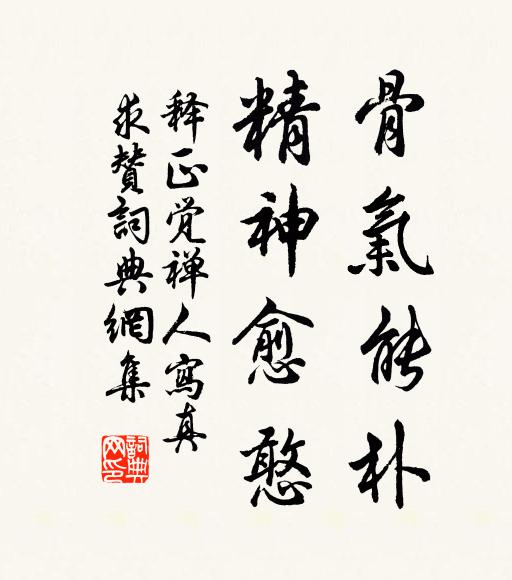 骨氣能朴
精神愈憨
释正觉禅人寫真
求賛詞典網集
詞典
网印